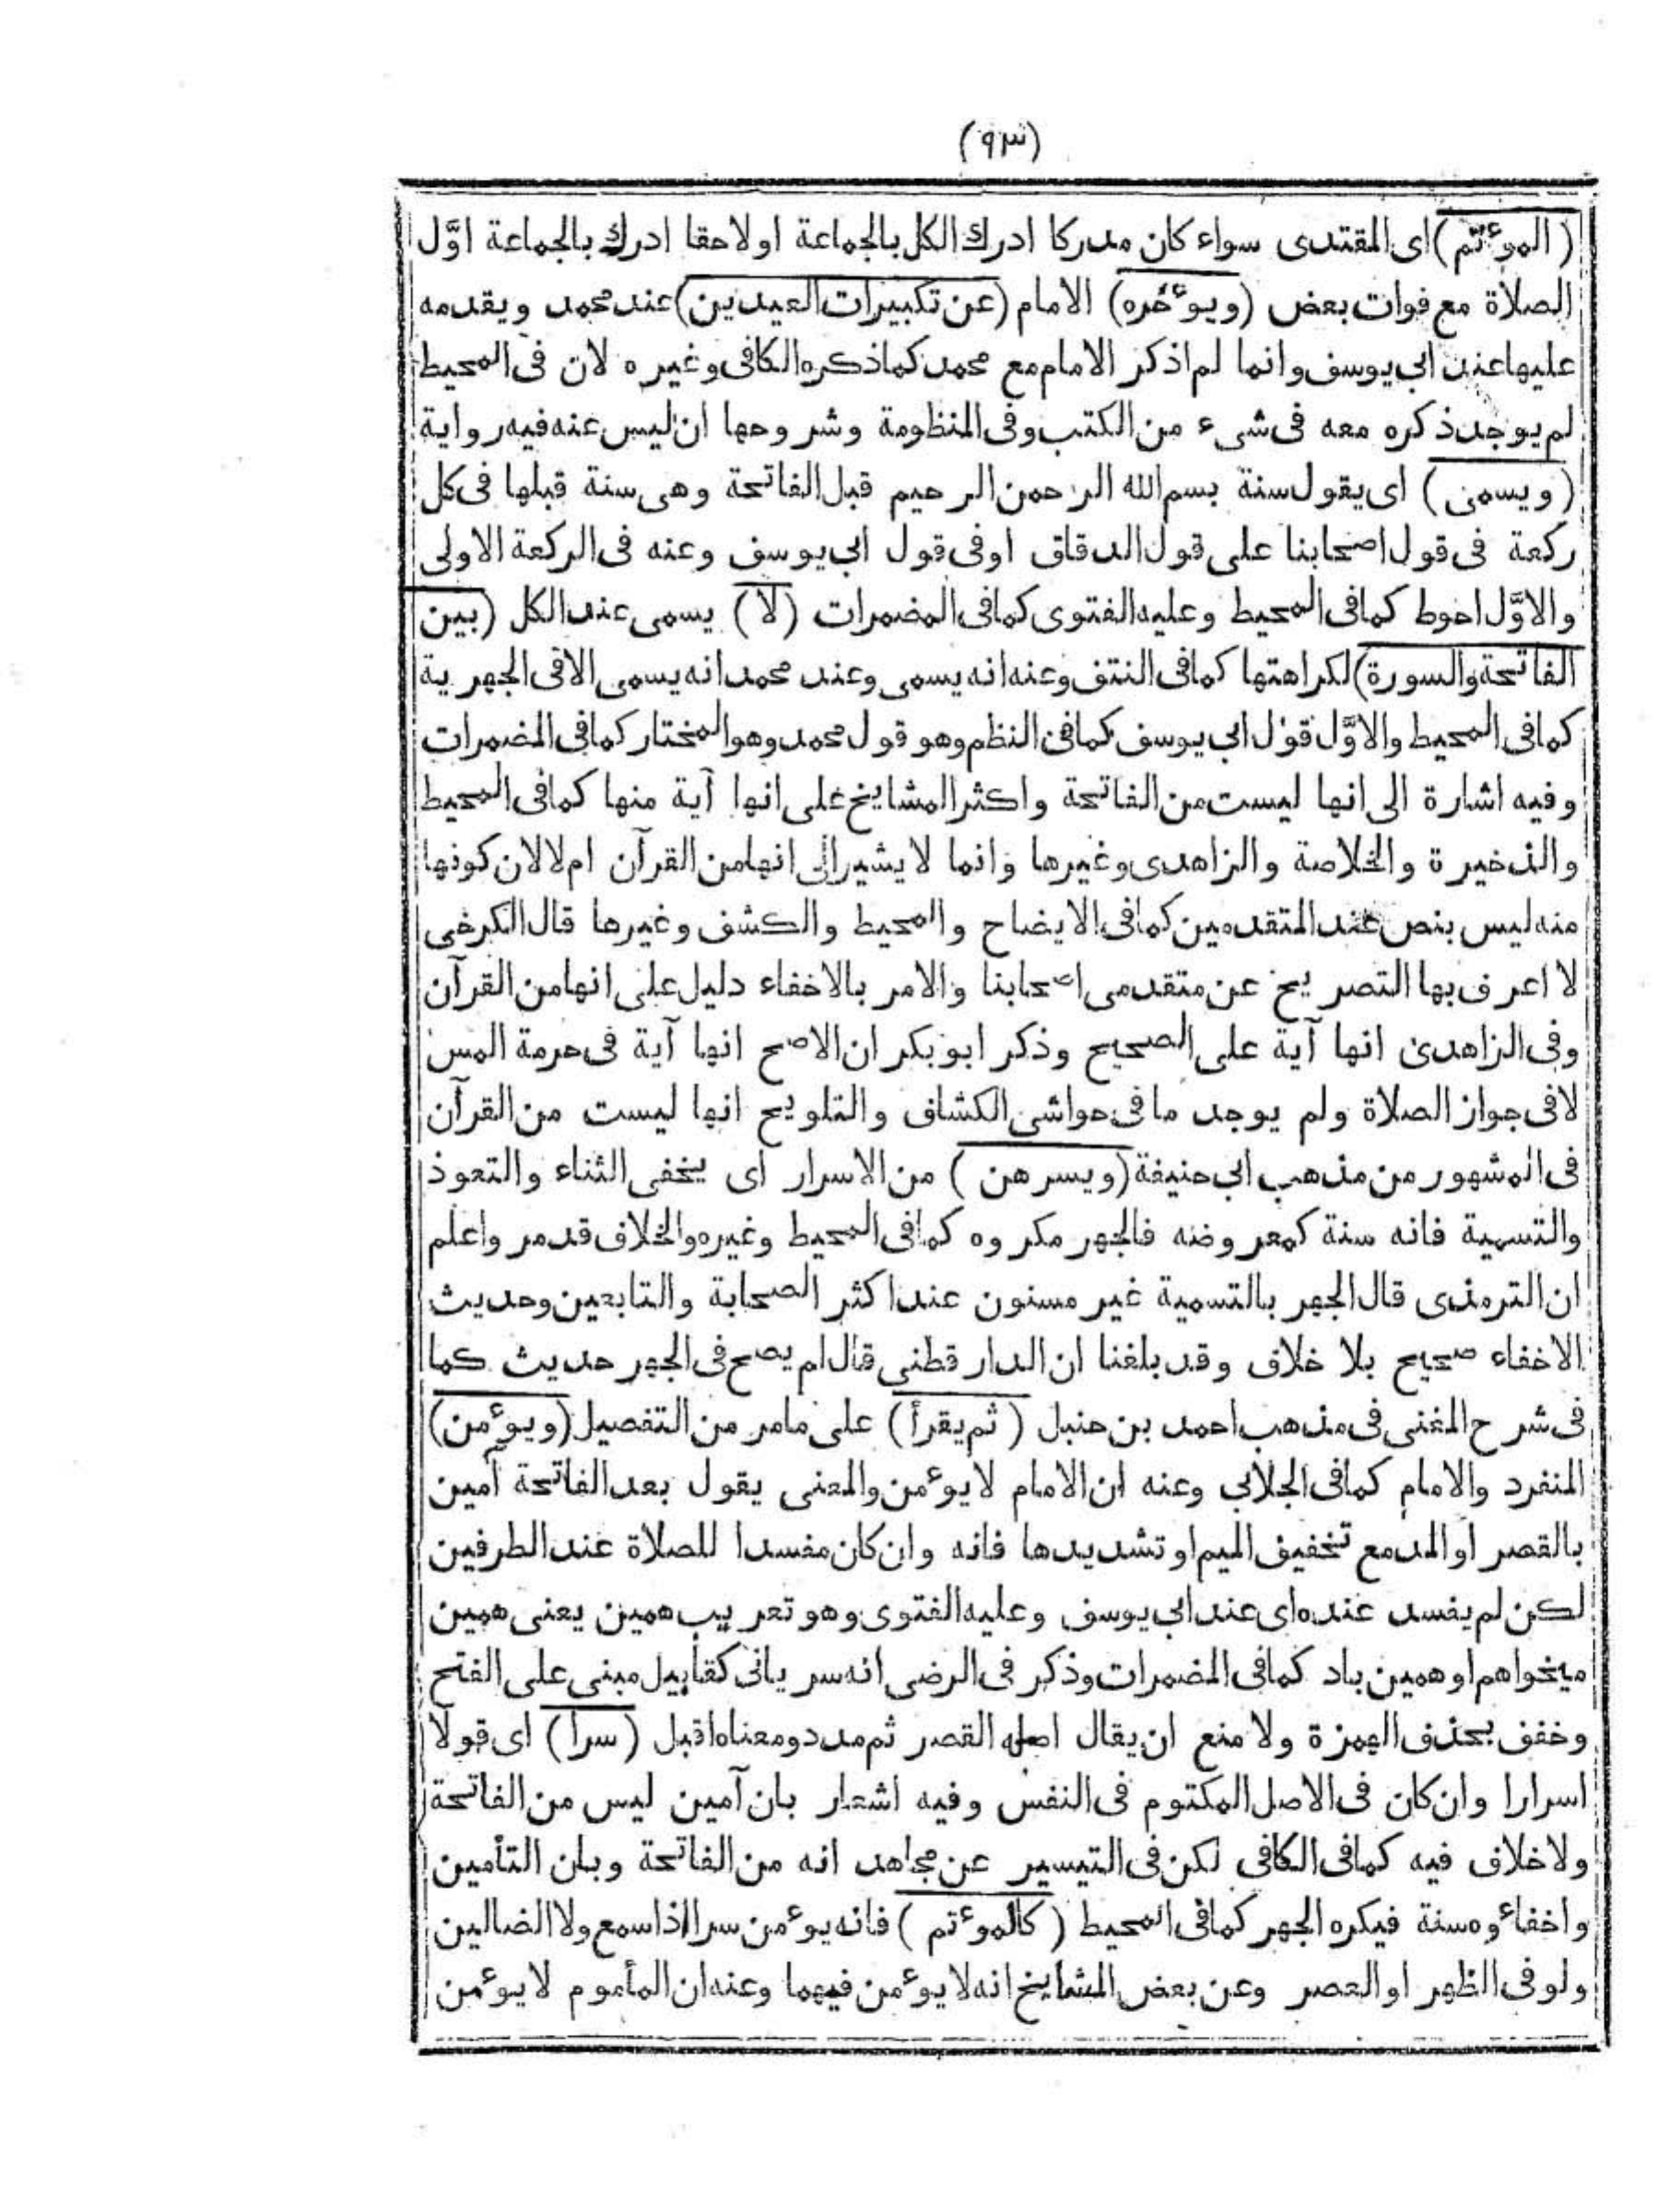 (٩٣)
(الموءتم) اى المقتدى سواء كان مدركا ادرك الكل بالجماعة او لاحقا ادرك بالجماعة اوَّل
الصلاة مع فوات بعض (ويوءخره) الامام (عن تكبيرات العيدين) عند محمد ويقدمه
عليها عند ابى يوسف وانما لم اذكر الامام مع محمد كما ذكره الكافى وغيره لان فى المحيط
لم يوجد ذكره معه فى شىء من الكتب وفى المنظومة وشروحها ان ليس عنه فيه رواية
(ويسمى) اى يقول سنة بسم الله الرحمن الرحيم قبل الفاتحة وهى سنة قبلها فى كل
ركعة فى قول اصحابنا على قول الدقاق اوفى قول ابى يوسف وعنه فى الركعة الاولى
والاوَّل احوط كما فى المحيط وعليه الفتوى كما فى المضمرات (لا) يسمى عند الكل (بين
الفاتحة والسورة) لكراهتها كما فى النتف وعنه انه يسمى وعند محمد انه يسمى الا فى الجهرية
كما فى المحيط والاوَّل قول ابى يوسف كما فى النظم وهو قول محمد وهو المختار كما فى المضمرات
وفيه اشارة الى انها ليست من الفاتحة واكثر المشايخ على انها آية منها كما فى المحيط
والذخيرة والخلاصة والزاهدى وغيرها وانما لا يشير الى انها من القرآن ام لا لان كونها
منه ليس بنص عند المتقدمين كما فى الايضاح والمحيط والكشف وغيرها قال الكرخى
لا اعرف بها التصريح عن متقدمى اصحابنا والامر بالاخفاء دليل على انها من القرآن
وفى الزاهدى انها آية على الصحيح وذكر ابو بكر ان الاصح انها آية فى حرمة المس
لا فى جواز الصلاة ولم يوجد ما فى حواشى الكشاف والتلويح انها ليست من القرآن
فى المشهور من مذهب ابى حنيفة (ويسرهن) من الاسرار اى يخفى الثناء والتعوذ
والتسمية فانه سنة كمعروضه فالجهر مكروه كما فى المحيط وغيره والخلاف قد مر واعلم
ان الترمذى قال الجهر بالتسمية غير مسنون عند اكثر الصحابة والتابعين وحديث
الاخفاء صحيح بلا خلاف وقد بلغنا ان الدارقطنى قال لم يصح فى الجهر حديث كما
فى شرح المغنى فى مذهب احمد بن حنبل (ثم يقرأ) على ما مر من التفصيل (ويوءمن)
المنفرد والامام كما فى الجلابى وعنه ان الامام لا يوءمن والمعنى يقول بعد الفاتحة آمين
بالقصر او المد مع تخفيف الميم او تشديدها فانه وان كان مفسدا للصلاة عند الطرفين
لكن لم يفسد عنده اى عند ابى يوسف وعليه الفتوى وهو تعريب همين يعنى همين
ميخواهم او همين باد كما فى المضمرات وذكر فى الرضى انه سريانى كقابيل مبنى على الفتح
وخفف بحذف الهمزة ولا منع ان يقال اصله القصر ثم مدد ومعناه اقبل (سرا) اى قولا
اسرارا وان كان فى الاصل المكتوم فى النفس وفيه اشعار بان آمين ليس من الفاتحة
ولا خلاف فيه كما فى الكافى لكن فى التيسير عن مجاهد انه من الفاتحة وبان التأمين
واخفاءوه سنة فيكره الجهر كما فى المحيط (كالموءتم) فانه يوءمن سرا اذا سمع ولا الضالين
ولو فى الظهر او العصر وعن بعض المشايخ انه لا يوءمن فيهما وعنه ان المأموم لا يوءمن